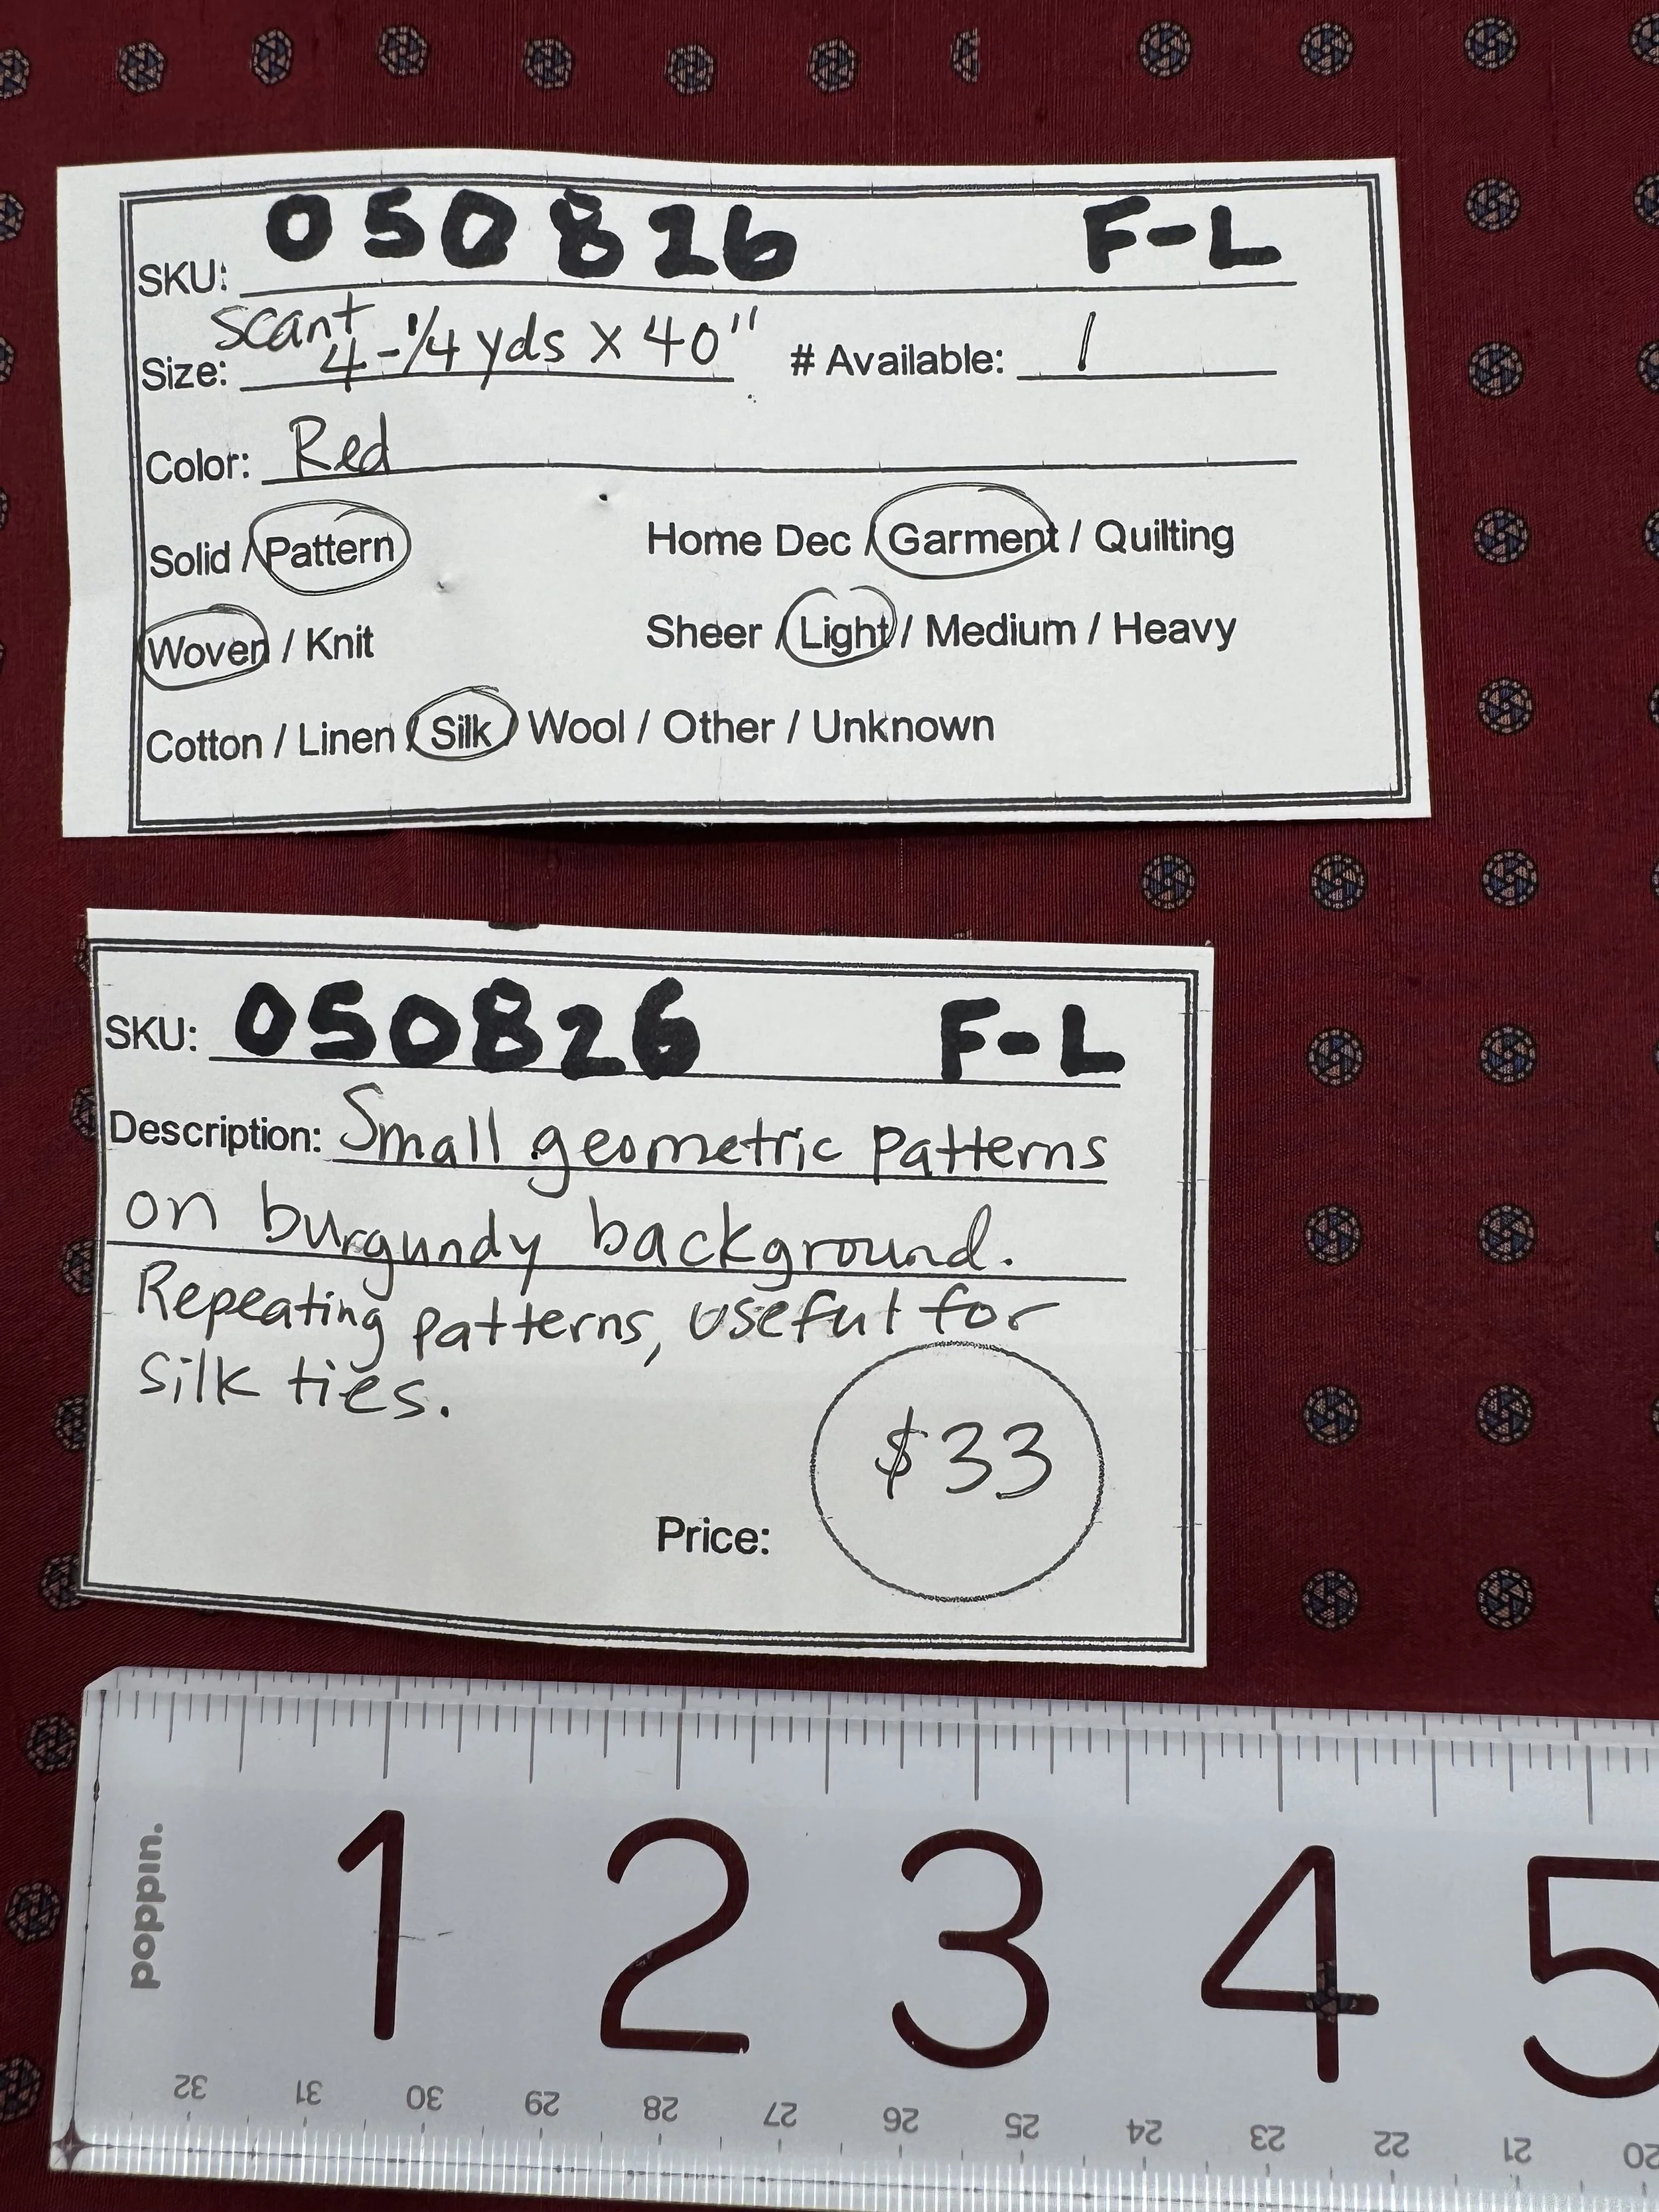 SKU: 050826 F-L
Size: scant 4-1/4 yds x 40" # Available: 1
Color: Red
Solid / Pattern Home Dec / Garment / Quilting
Woven / Knit Sheer / Light / Medium / Heavy
Cotton / Linen / Silk / Wool / Other / Unknown
SKU: 050826 F-L
Description: Small geometric patterns
on burgundy background.
Repeating patterns, useful for
silk ties.
$33
Price:
poppin.
1 2 3 4 5
32 31 30 29 28 27 26 25 24 23 22 21 20